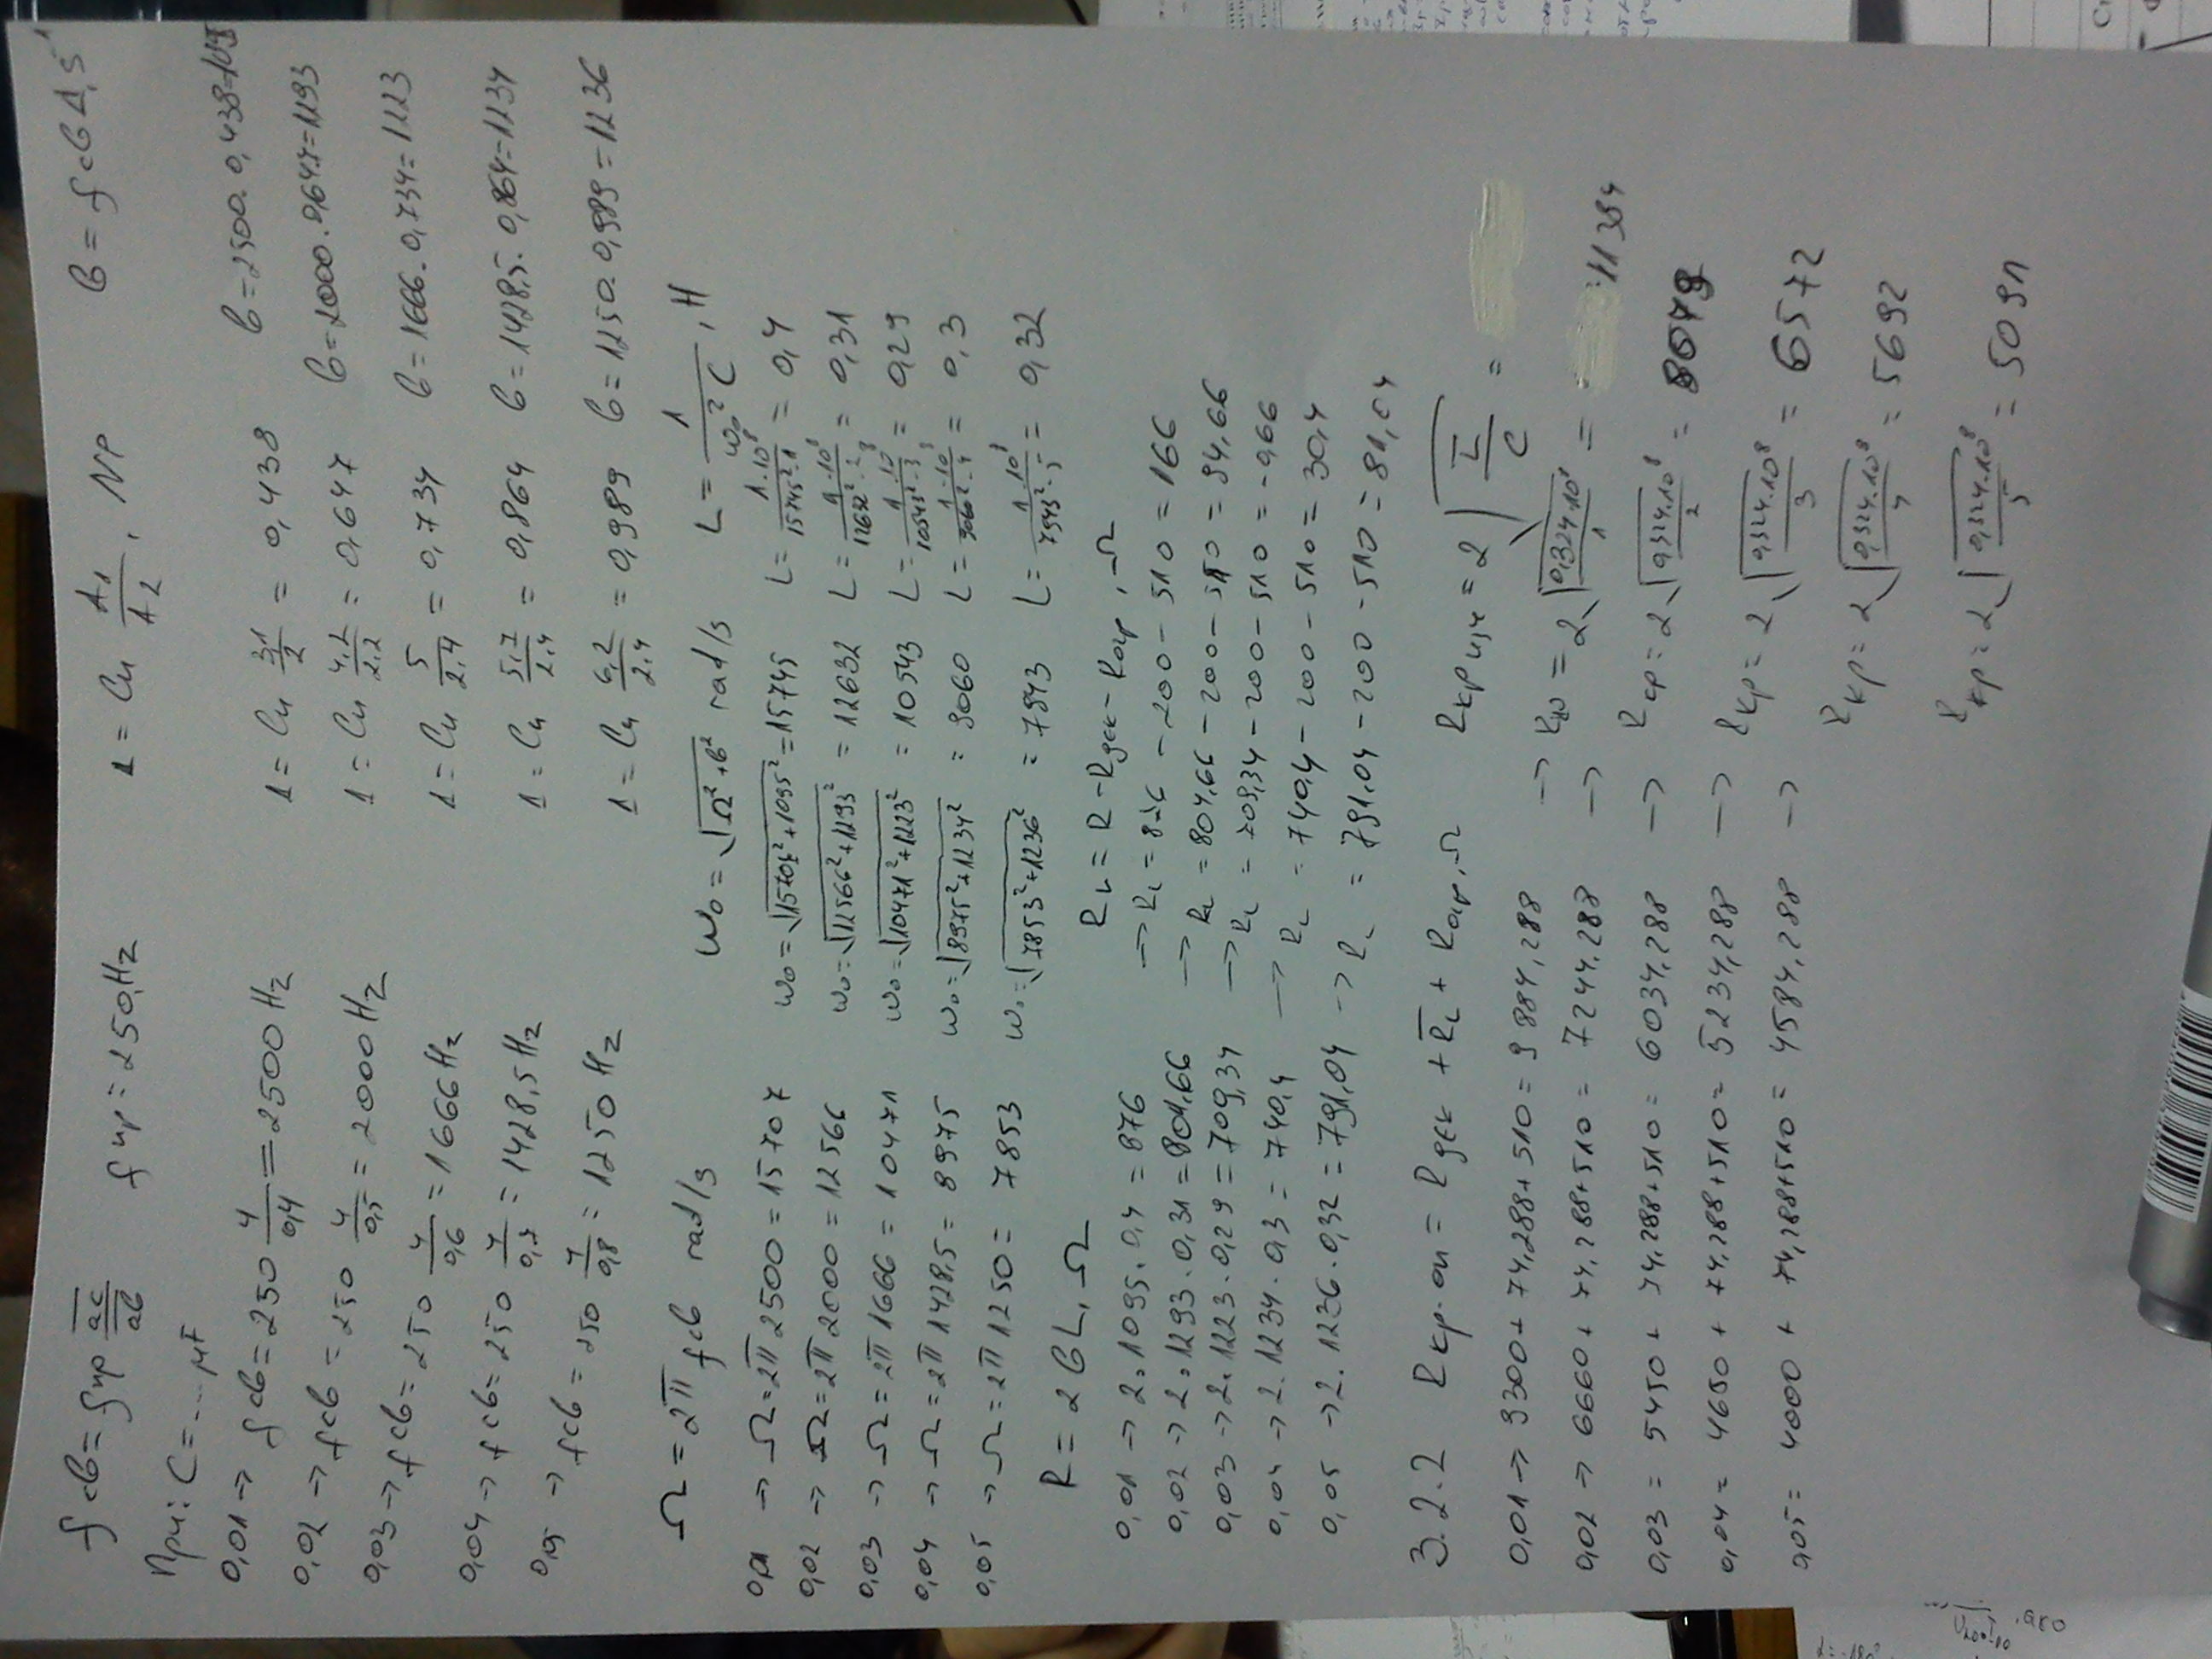 fсв = fир ac/ab   fир = 250, Hz   Λ = ln A1/A2, Np   б = fсв Λ, s⁻¹
При: C = ... μF
0,01 → fсв = 250 4/0,4 = 2500 Hz   Λ = ln 3,1/2 = 0,438   б = 2500. 0,438 =
0,02 → fсв = 250 4/0,5 = 2000 Hz   Λ = ln 4,2/2,2 = 0,647   б = 2000. 0,647 = 1293
0,03 → fсв = 250 4/0,6 = 1666 Hz   Λ = ln 5/2,4 = 0,734   б = 1666. 0,734 = 1223
0,04 → fсв = 250 4/0,7 = 1428,5 Hz   Λ = ln 5,7/2,4 = 0,864   б = 1428,5. 0,864 = 1234
0,05 → fсв = 250 4/0,8 = 1250 Hz   Λ = ln 6,2/2,4 = 0,989   б = 1250. 0,989 = 1236
Ω = 2π fсв rad/s   ω₀ = √Ω²+б² rad/s   L = 1/ω₀²C, H
0,01 → Ω = 2π 2500 = 15707   ω₀ = √15707²+1095² = 15745   L = 1.10⁸/15745².1 = 0,4
0,02 → Ω = 2π 2000 = 12566   ω₀ = √12566²+1293² = 12632   L = 1.10⁸/12632².2 = 0,31
0,03 → Ω = 2π 1666 = 10471   ω₀ = √10471²+1223² = 10543   L = 1.10⁸/10543².3 = 0,29
0,04 → Ω = 2π 1428,5 = 8975   ω₀ = √8975²+1234² = 9060   L = 1.10⁸/9060².4 = 0,3
0,05 → Ω = 2π 1250 = 7853   ω₀ = √7853²+1236² = 7943   L = 1.10⁸/7943².5 = 0,32
R = 2бL, Ω   RL = R - Rдек - Rаир, Ω
0,01 → 2. 1095. 0,4 = 876 → RL = 876 - 200 - 510 = 166
0,02 → 2. 1293. 0,31 = 801,66 → RL = 804,66 - 200 - 510 = 94,66
0,03 → 2. 1223. 0,29 = 709,34 → RL = 709,34 - 200 - 510 = -0,66
0,04 → 2. 1234. 0,3 = 740,4 → RL = 740,4 - 200 - 510 = 30,4
0,05 → 2. 1236. 0,32 = 791,04 → RL = 791,04 - 200 - 510 = 81,04
3.2.2   Rкр.оп = Rдек + R̅L + Rаир, Ω   Rкр изч = 2√L̅/C =
0,01 → 9300 + 74,288 + 510 = 9884,288 → Rкр = 2√0,324.10⁸/1 = 11384
0,02 → 6660 + 74,288 + 510 = 7244,288 → Rкр = 2√0,324.10⁸/2 = 8049
0,03 = 5450 + 74,288 + 510 = 6034,288 → Rкр = 2√0,324.10⁸/3 = 6572
0,04 = 4650 + 74,288 + 510 = 5234,288 → Rкр = 2√0,324.10⁸/4 = 5692
0,05 = 4000 + 74,288 + 510 = 4584,288 → Rкр = 2√0,324.10⁸/5 = 5091